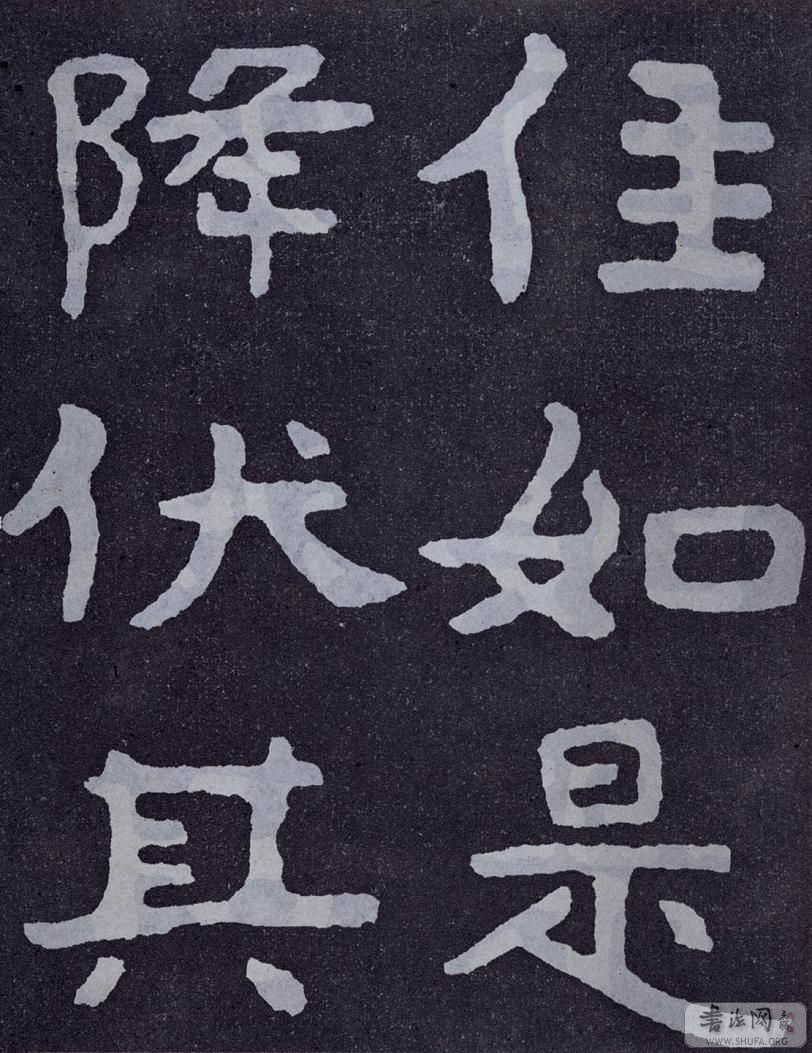 住如是
降伏其
書法网
WWW.SHUFA.ORG